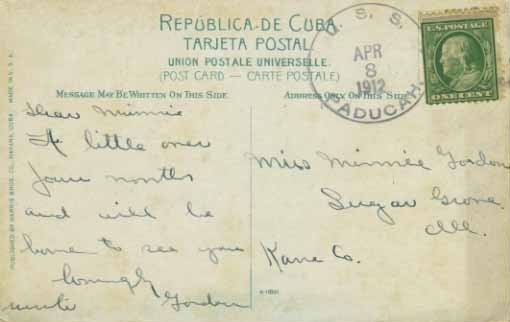 REPÚBLICA DE CUBA.
TARJETA POSTAL
UNION POSTALE UNIVERSELLE.
(POST CARD — CARTE POSTALE)
MESSAGE MAY BE WRITTEN ON THIS SIDE
ADDRESS ONLY ON THIS SIDE
U. S. S.
APR
8
1912
PADUCAH.
U.S. POSTAGE
ONE CENT
Dear Minnie
A little over
four months
and will be
home to see you
Lovingly
uncle Gordon
Miss Minnie Gordon
Sugar Grove
Ill.
Kane Co.
PUBLISHED BY HARRIS BROS. CO., HAVANA, CUBA. MADE IN U. S. A.